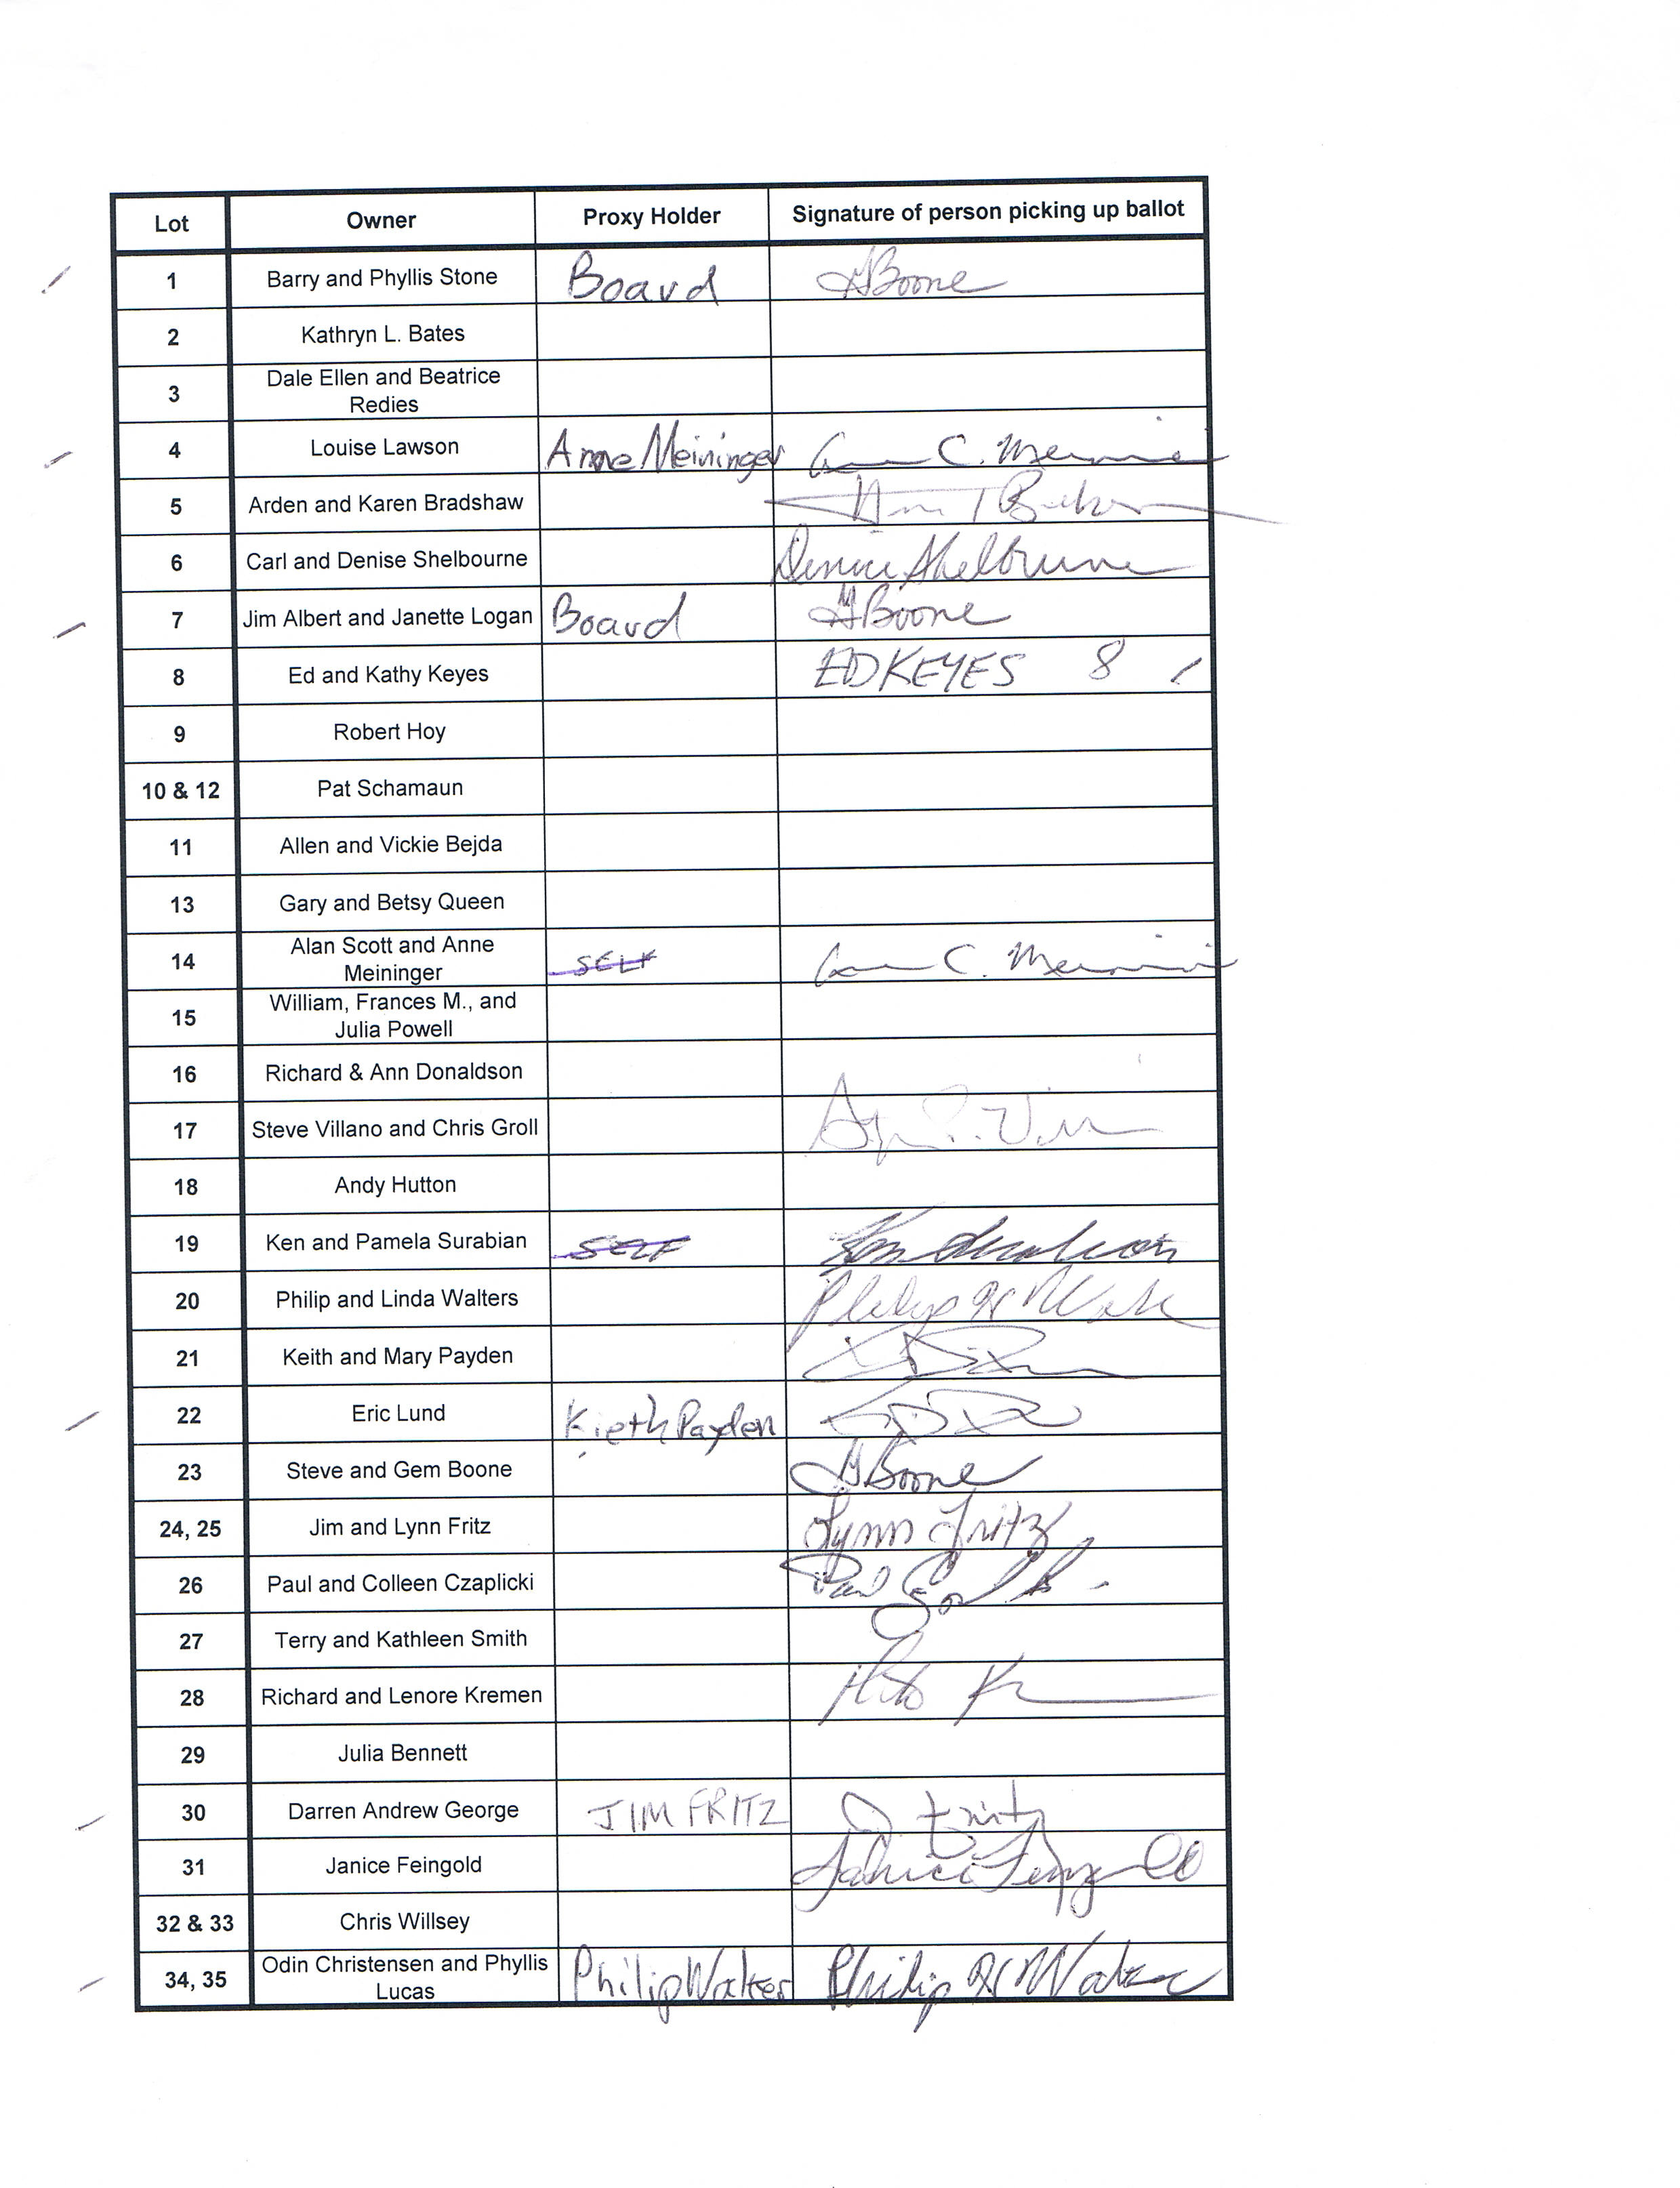 Lot Owner Proxy Holder Signature of person picking up ballot
1 Barry and Phyllis Stone Board GBoone
2 Kathryn L. Bates
3 Dale Ellen and Beatrice
Redies
4 Louise Lawson Anne Meininger C.
5 Arden and Karen Bradshaw
6 Carl and Denise Shelbourne Denise Shelbourne
7 Jim Albert and Janette Logan Board GBoone
8 Ed and Kathy Keyes ED KEYES 8
9 Robert Hoy
10 & 12 Pat Schamaun
11 Allen and Vickie Bejda
13 Gary and Betsy Queen
14 Alan Scott and Anne
Meininger SELF C.
15 William, Frances M., and
Julia Powell
16 Richard & Ann Donaldson
17 Steve Villano and Chris Groll
18 Andy Hutton
19 Ken and Pamela Surabian SELF Ken Surabian
20 Philip and Linda Walters
21 Keith and Mary Payden
22 Eric Lund Kieth Payden
23 Steve and Gem Boone GBoone
24, 25 Jim and Lynn Fritz Lynn Fritz
26 Paul and Colleen Czaplicki Paul
27 Terry and Kathleen Smith
28 Richard and Lenore Kremen
29 Julia Bennett
30 Darren Andrew George JIM FRITZ J Fritz
31 Janice Feingold Janice Feingold
32 & 33 Chris Willsey
34, 35 Odin Christensen and Phyllis
Lucas Philip Walter Philip